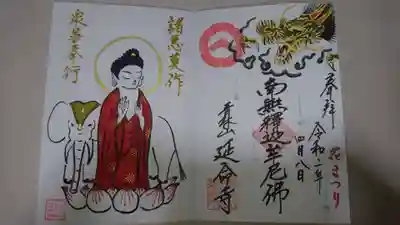 奉拝
令和二年
四月八日
花まつり
南無釋迦牟尼佛
延命寺
諸悪莫作
衆善奉行